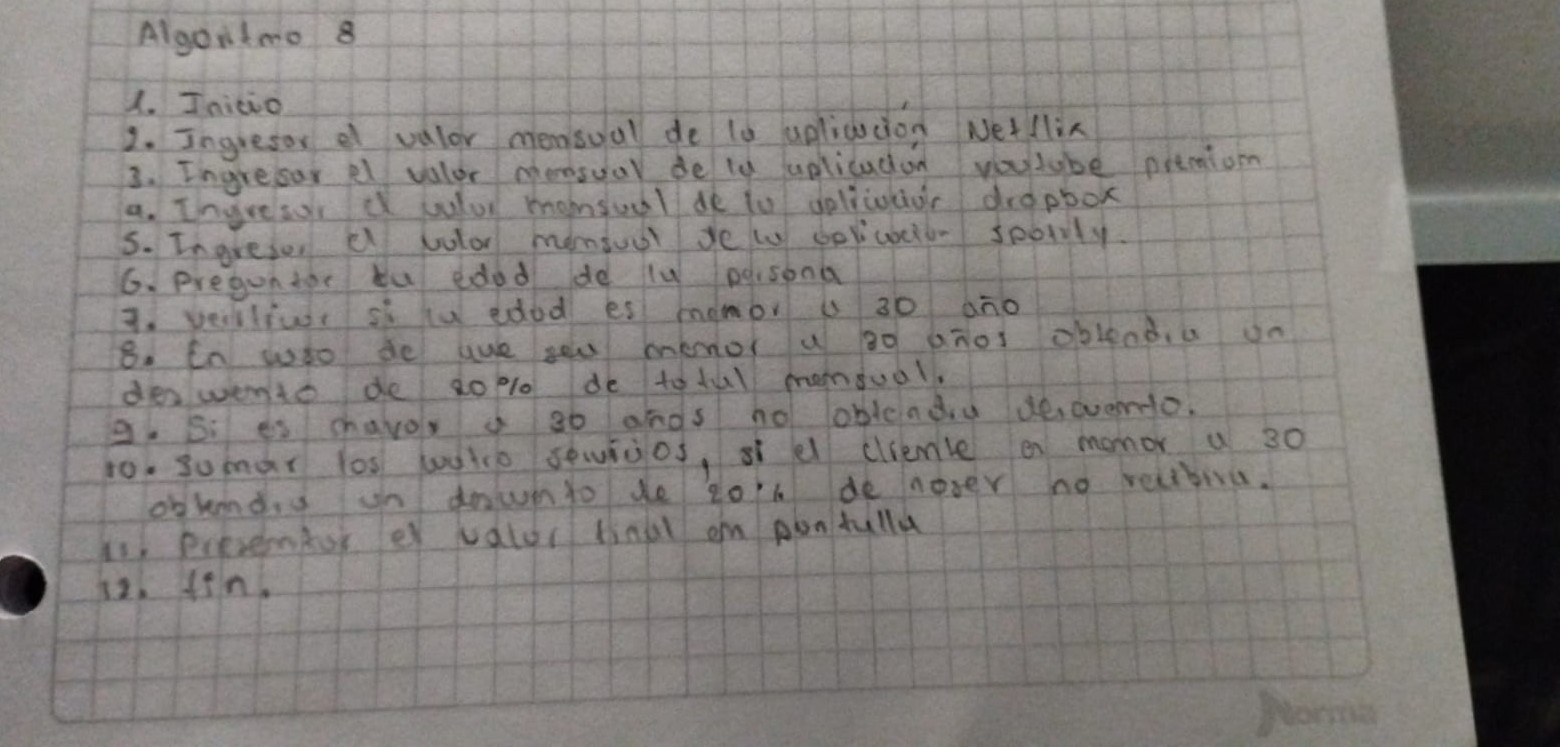 Algoritmo 8
1. Inicio
2. Ingresar el valor mensual de la aplicación Netflix
3. Ingresar el valor mensual de la aplicación youtube premium
4. Ingresar el valor mensual de la aplicación dropbox
5. Ingresar el valor mensual de la aplicación spotify.
6. Preguntar la edad de la persona
7. verificar si la edad es menor a 30 año
8. En caso de que sea menor a 30 años obtendra un
descuento de 20% de total mensual.
9. Si es mayor a 30 años no obtendra descuento.
10. Sumar los cuatro servicios, si el cliente es menor a 30
obtendra un descuento de 20% de no ser no recibira.
11. Presentar el valor final en pantalla
12. fin.
Norma